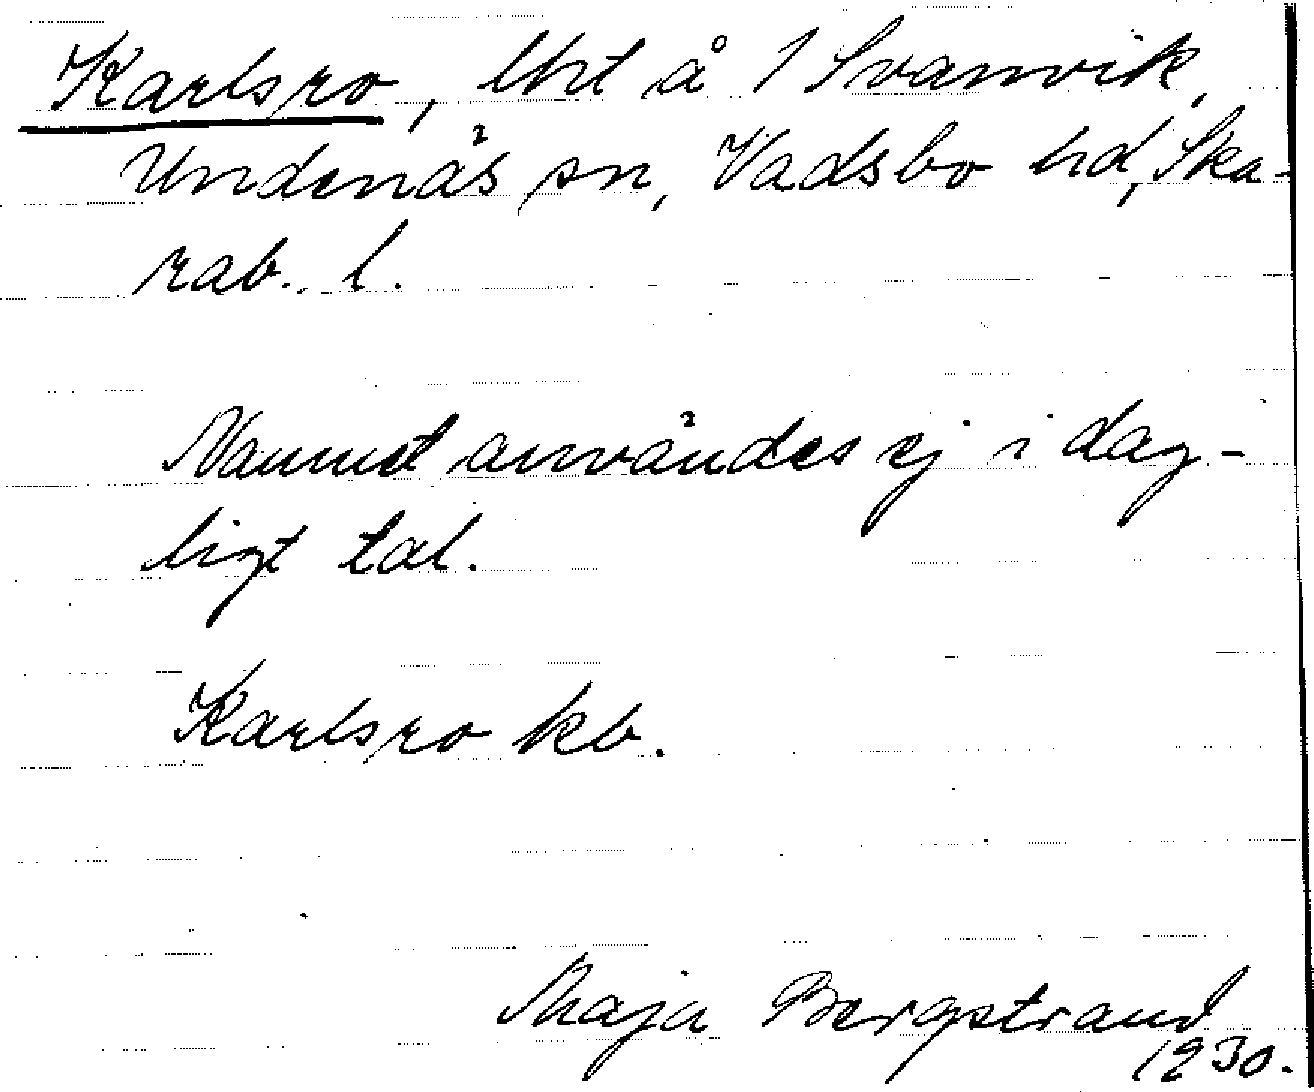 Karlsro, lht å 1 Svanvik,
Undenäs sn, Vadsbo hd, Ska-
rab. l.
Namnet användes ej i dag-
ligt tal.
Karlsro kb.
Maja Bergstrand
1930.